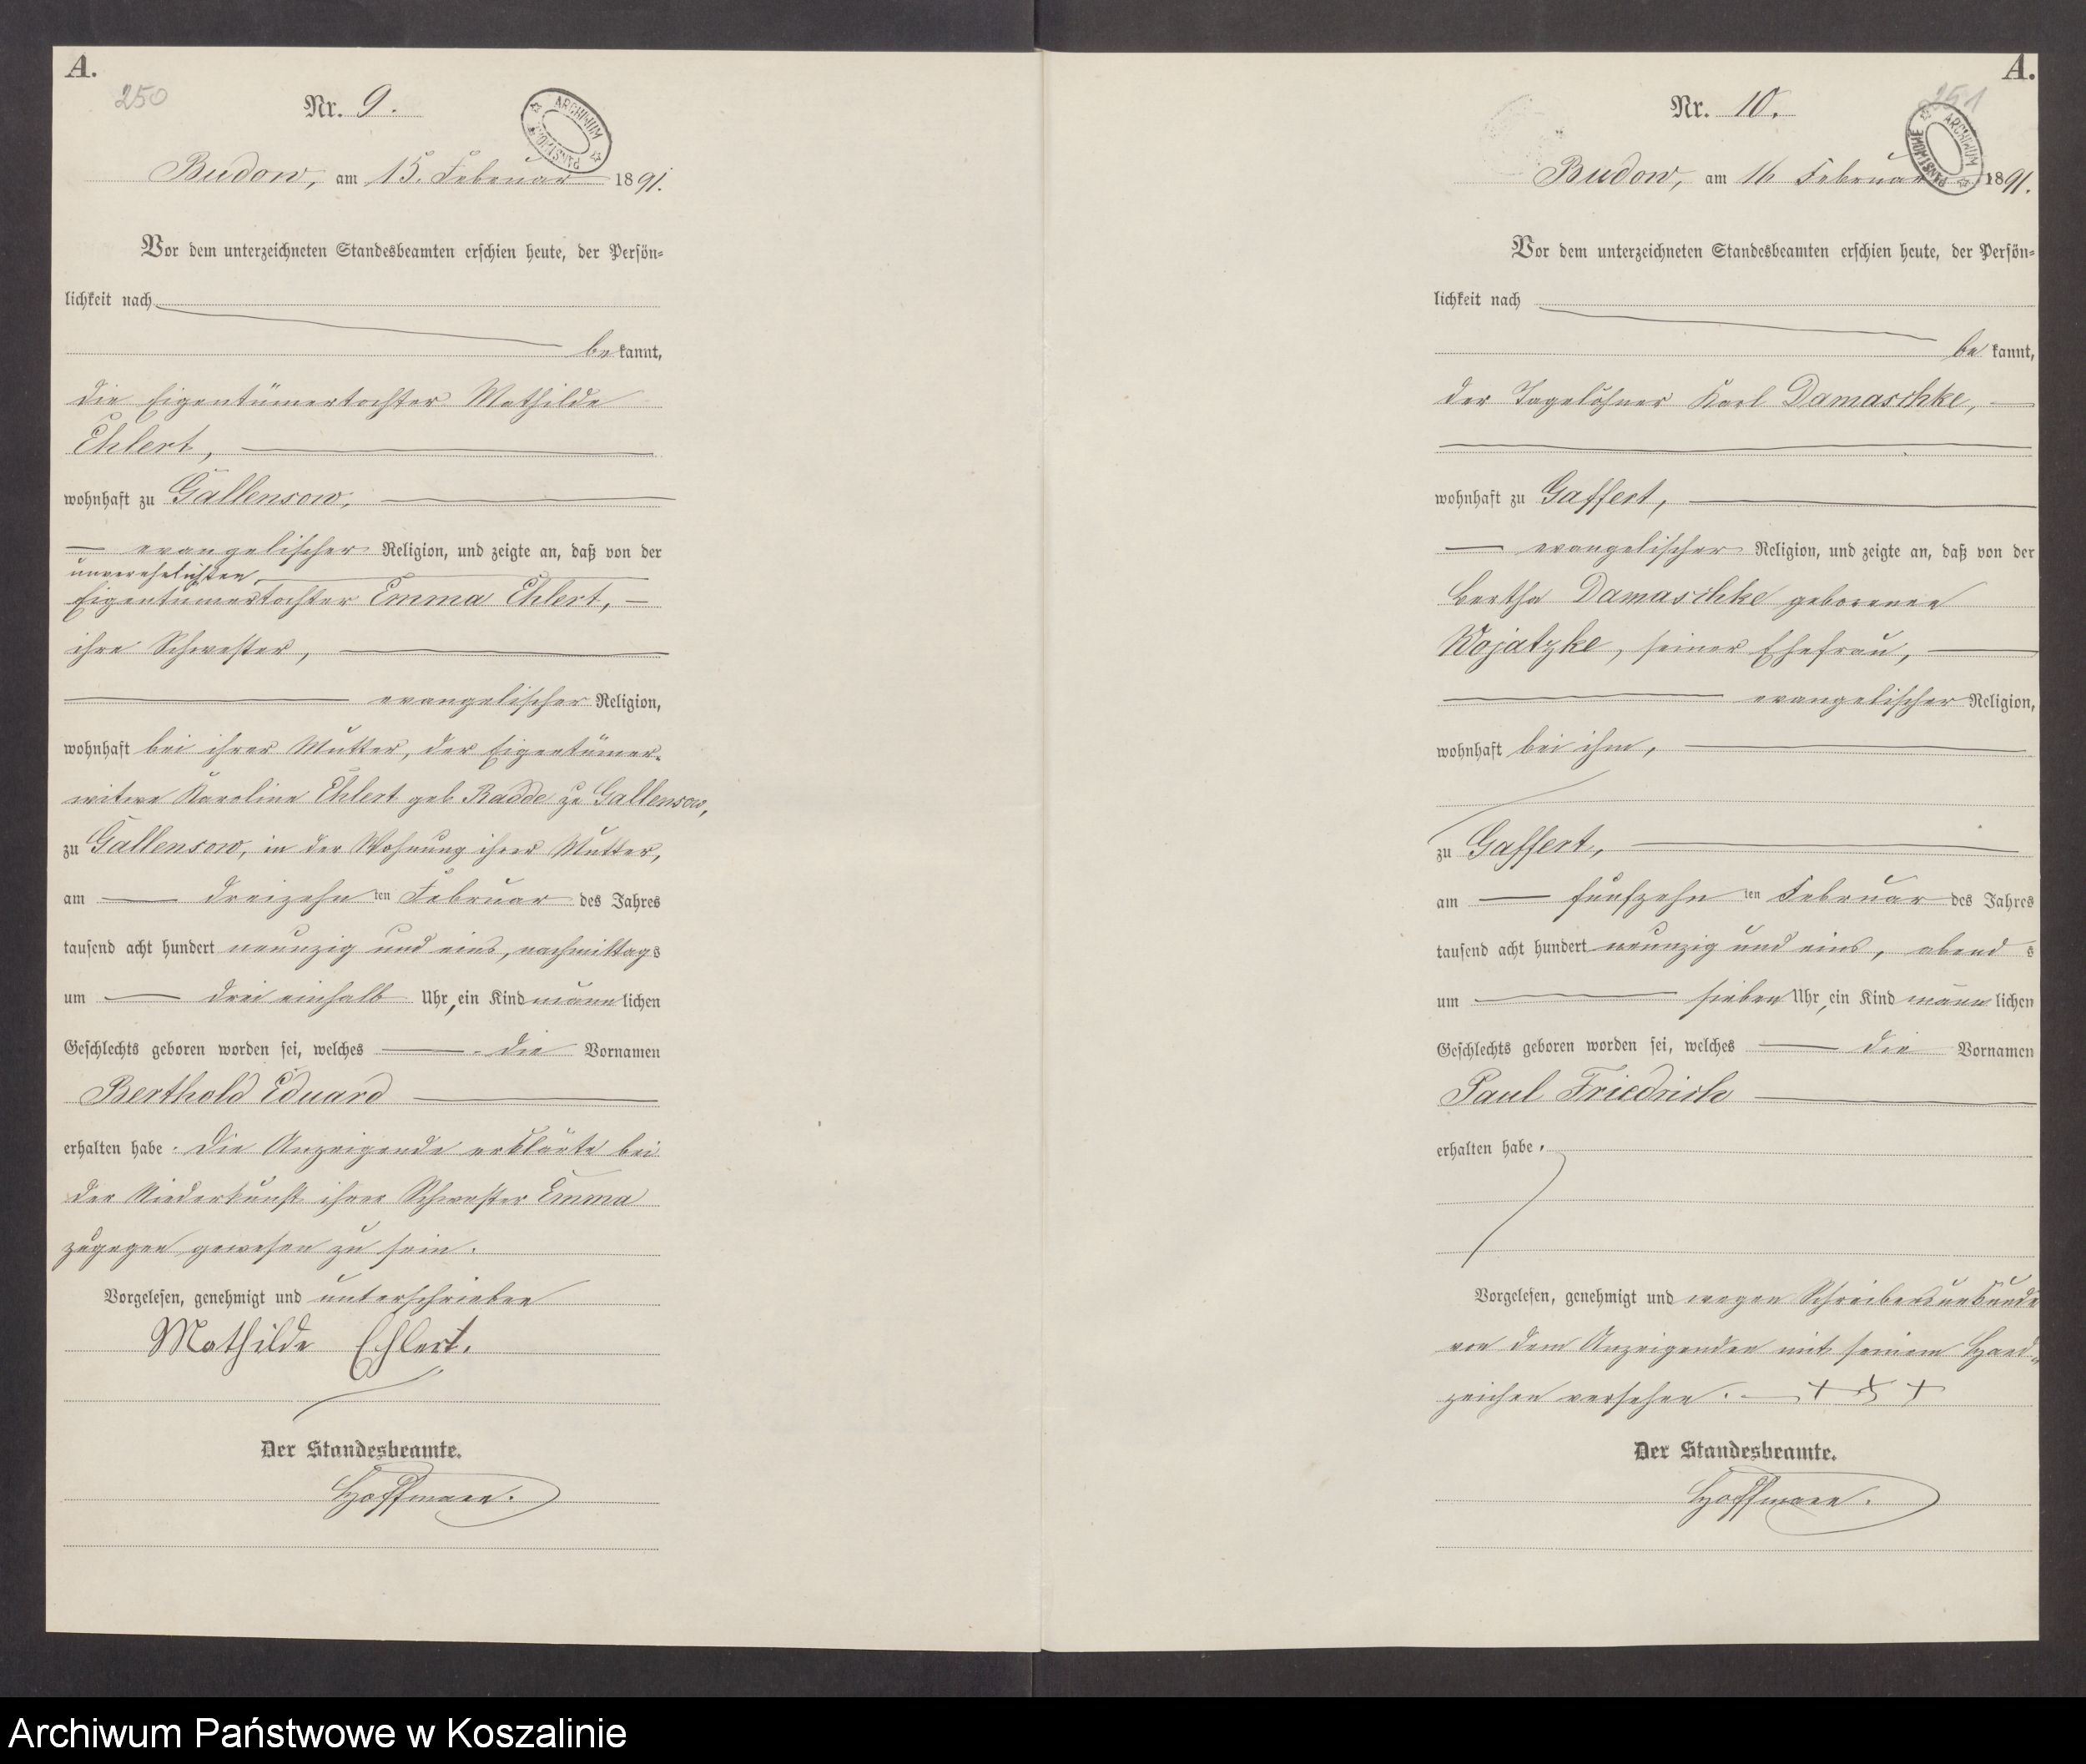 A.
250
Nr. 9.
ARCHIWUM PAŃSTWOWE
Budow, am 15. Februar 1891.
Vor dem unterzeichneten Standesbeamten erschien heute, der Persön-
lichkeit nach
bekannt,
die Eigentümertochter Mathilde
Ehlert,
wohnhaft zu Gallensow,
evangelischer Religion, und zeigte an, daß von der
unverehelichten
Eigentümertochter Emma Ehlert,
ihre Schwester,
evangelischer Religion,
wohnhaft bei ihrer Mutter, der Eigentümer-
witwe Karoline Ehlert geb. Radde zu Gallensow,
zu Gallensow, in der Wohnung ihrer Mutter,
am dreizehnten Februar des Jahres
tausend acht hundert neunzig und eins, nachmittags
um drei einhalb Uhr, ein Kind männlichen
Geschlechts geboren worden sei, welches die Vornamen
Berthold Eduard
erhalten habe. Die Anzeigende erklärte bei
der Niederkunft ihrer Schwester Emma
zugegen gewesen zu sein.
Vorgelesen, genehmigt und unterschrieben
Mathilde Ehlert.
Der Standesbeamte.
Hoffmann.
A.
251
Nr. 10.
ARCHIWUM PAŃSTWOWE
Budow, am 16 Februar 1891.
Vor dem unterzeichneten Standesbeamten erschien heute, der Persön-
lichkeit nach
bekannt,
der Tagelöhner Karl Damaschke,
wohnhaft zu Gaffert,
evangelischer Religion, und zeigte an, daß von der
Bertha Damaschke geborenen
Wojatzke, seiner Ehefrau,
evangelischer Religion,
wohnhaft bei ihm,
zu Gaffert,
am fünfzehnten Februar des Jahres
tausend acht hundert neunzig und eins, abends
um sieben Uhr, ein Kind männlichen
Geschlechts geboren worden sei, welches die Vornamen
Paul Friedrich
erhalten habe.
Vorgelesen, genehmigt und wegen Schreibensunkunde
von dem Anzeigenden mit seinem Hand-
zeichen versehen. + + +
Der Standesbeamte.
Hoffmann.
Archiwum Państwowe w Koszalinie